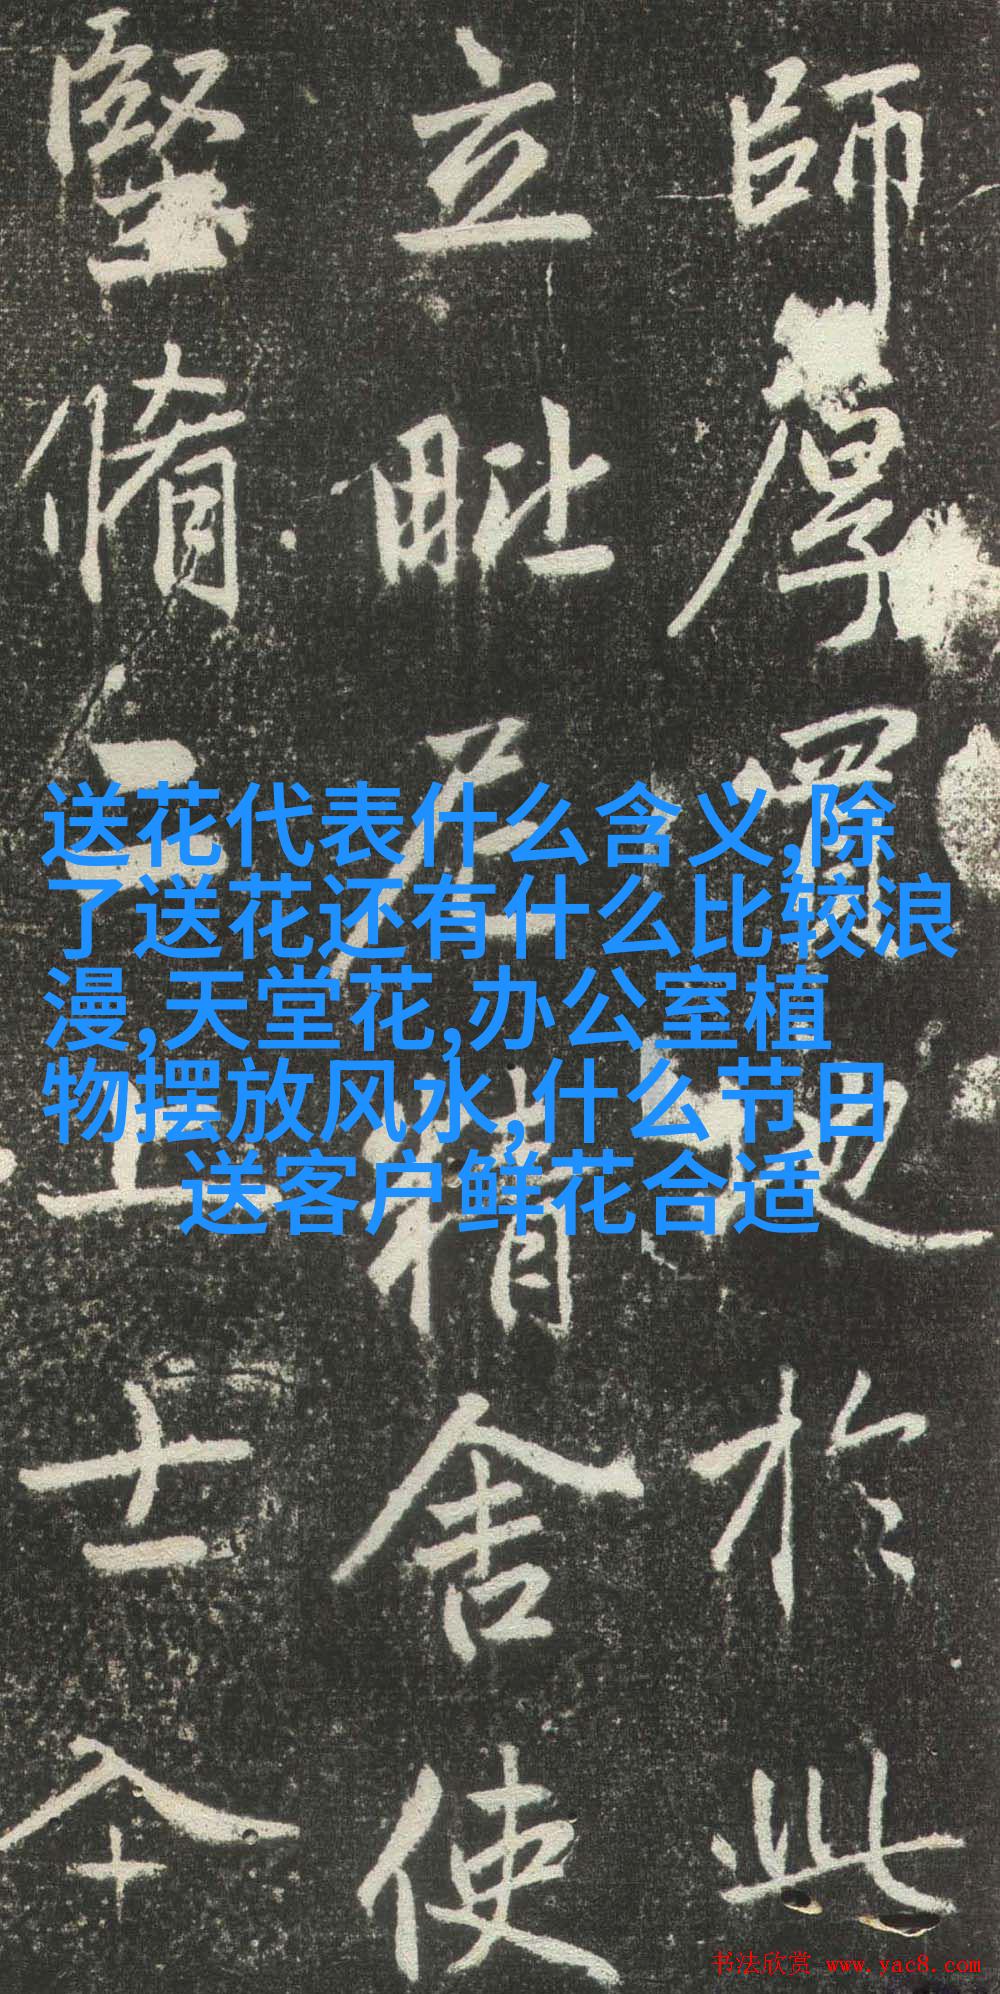 師厚於此
立毗尼精舍使
堅脩上士
送花代表什么含义,除
了送花还有什么比较浪
漫,天堂花,办公室植
物摆放风水,什么节日
送客户鲜花合适
书法欣赏 www.yac8.com